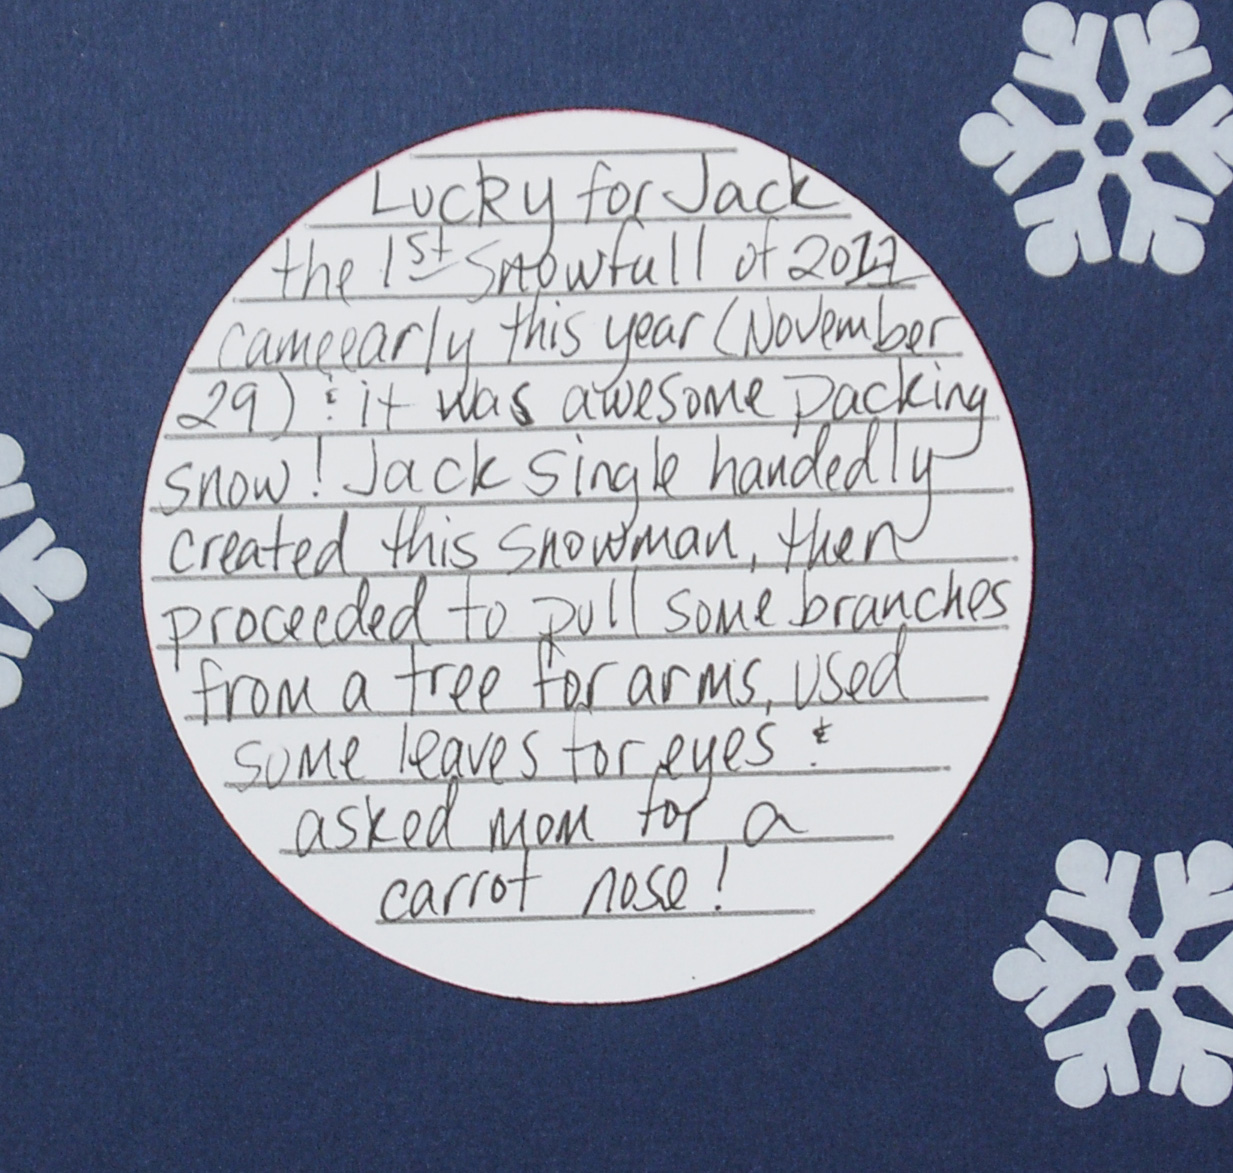 Lucky for Jack
the 1st snowfall of
came early this year (November
29) & it was awesome packing
snow! Jack single handedly
created this snowman, then
proceeded to pull some branches
from a tree for arms, used
some leaves for eyes &
asked mom for a
carrot nose!